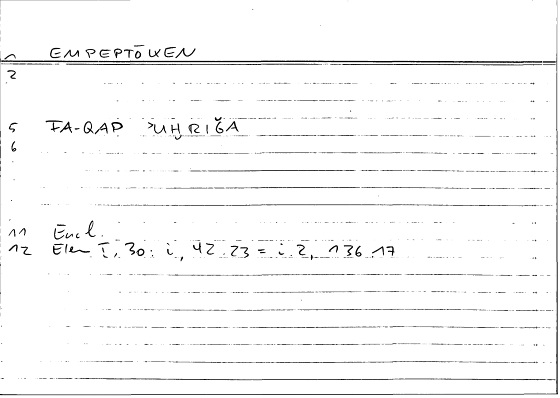 1 EMPEPTŌKEN
2
5 FA-QAD ʾUḪRIǦA
6
11 Eucl.
12 Elem I, 30: i, 42.23 = i 2, 136.17